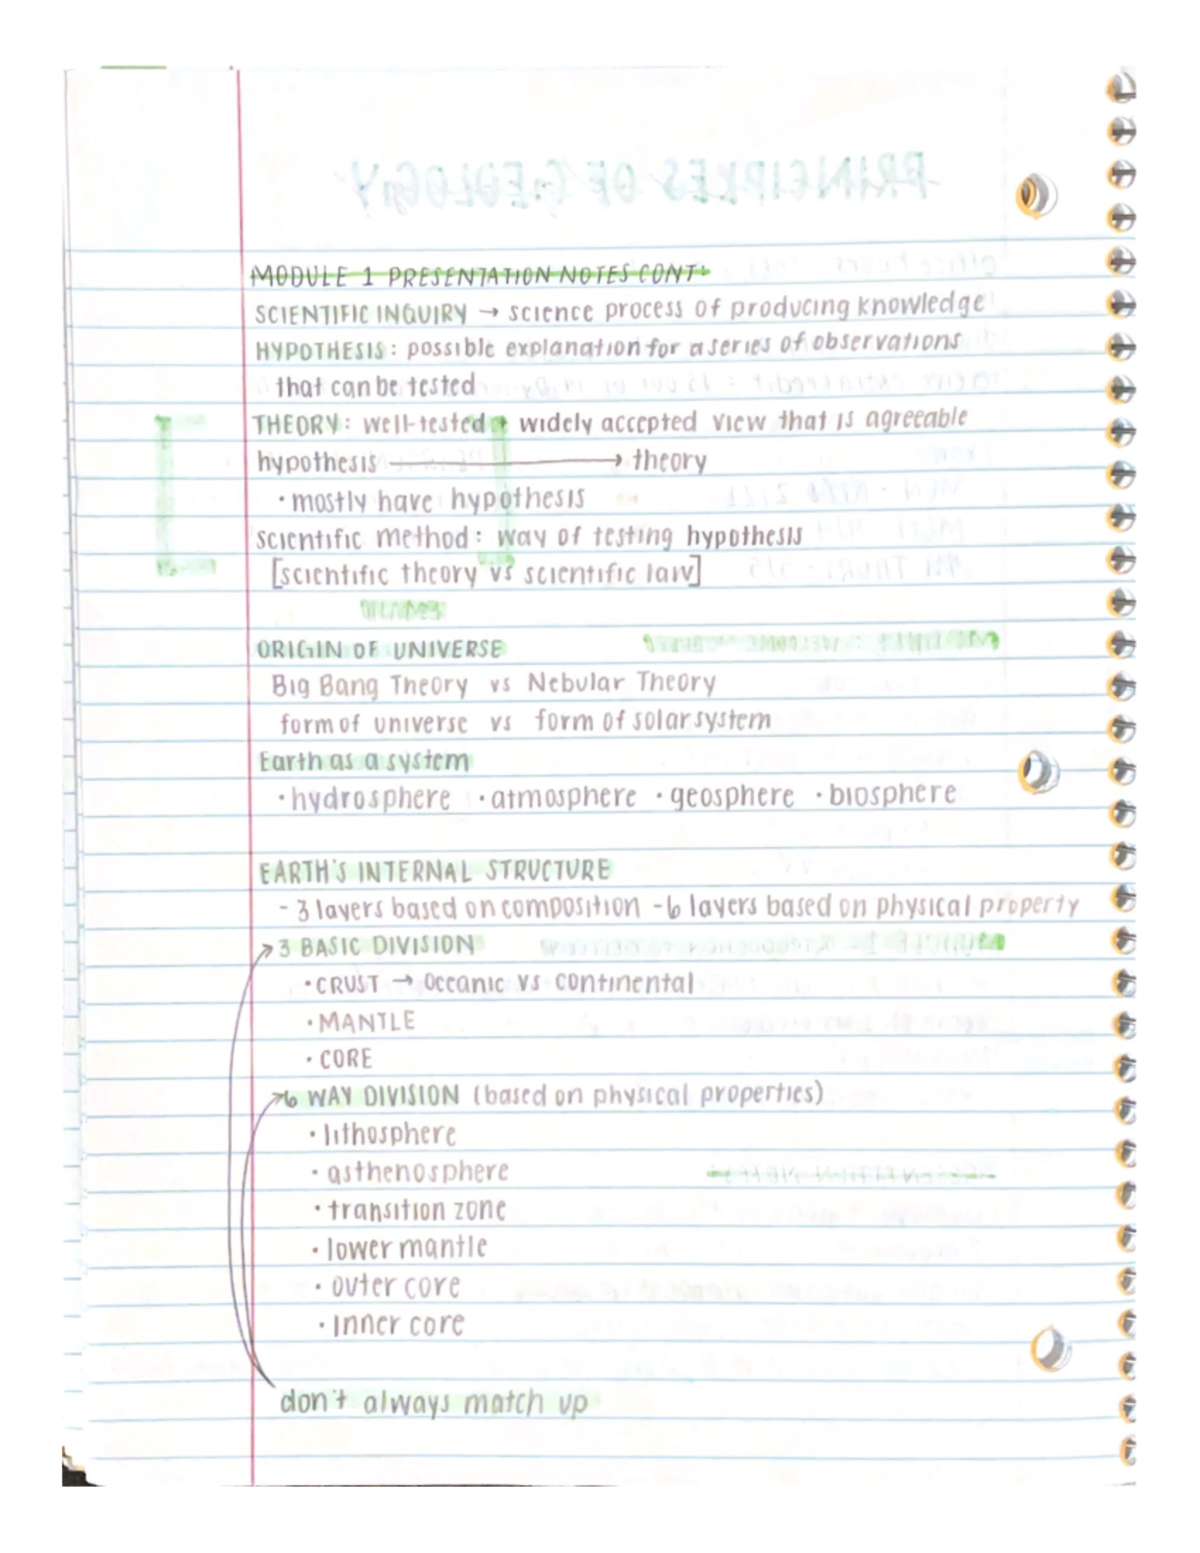 PRINCIPLES OF GEOLOGY
MODULE 1 PRESENTATION NOTES CONT:
SCIENTIFIC INQUIRY → science process of producing knowledge
HYPOTHESIS: possible explanation for a series of observations
that can be tested
THEORY: well-tested + widely accepted view that is agreeable
hypothesis → theory
• mostly have hypothesis
scientific method: way of testing hypothesis
[scientific theory vs scientific law]
ORIGIN OF UNIVERSE
Big Bang Theory vs Nebular Theory
form of universe vs form of solar system
Earth as a system
• hydrosphere • atmosphere • geosphere • biosphere
EARTH'S INTERNAL STRUCTURE
- 3 layers based on composition - 6 layers based on physical property
3 BASIC DIVISION
• CRUST → Oceanic vs continental
• MANTLE
• CORE
6 WAY DIVISION (based on physical properties)
• lithosphere
• asthenosphere
• transition zone
• lower mantle
• outer core
• Inner core
don't always match up